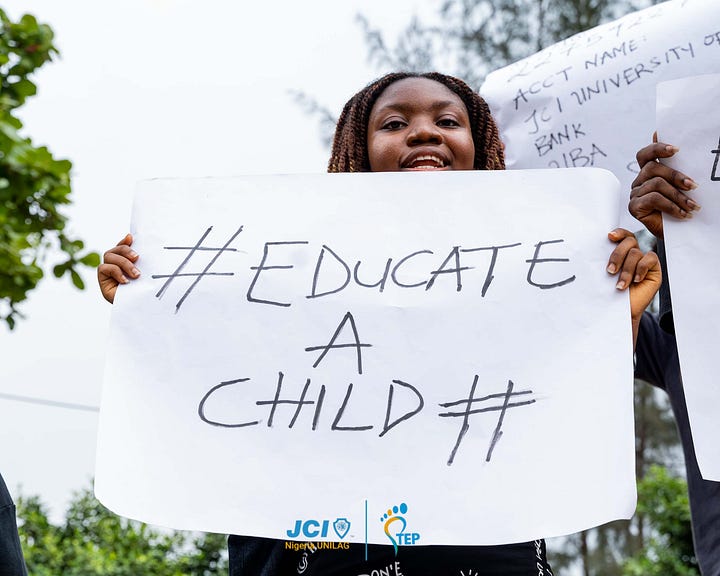 #EDUCATE
A
CHILD#
ACCT NAME:
JCI UNIVERSITY OF
BANK
JCI
Nigeria UNILAG
STEP
DON'T